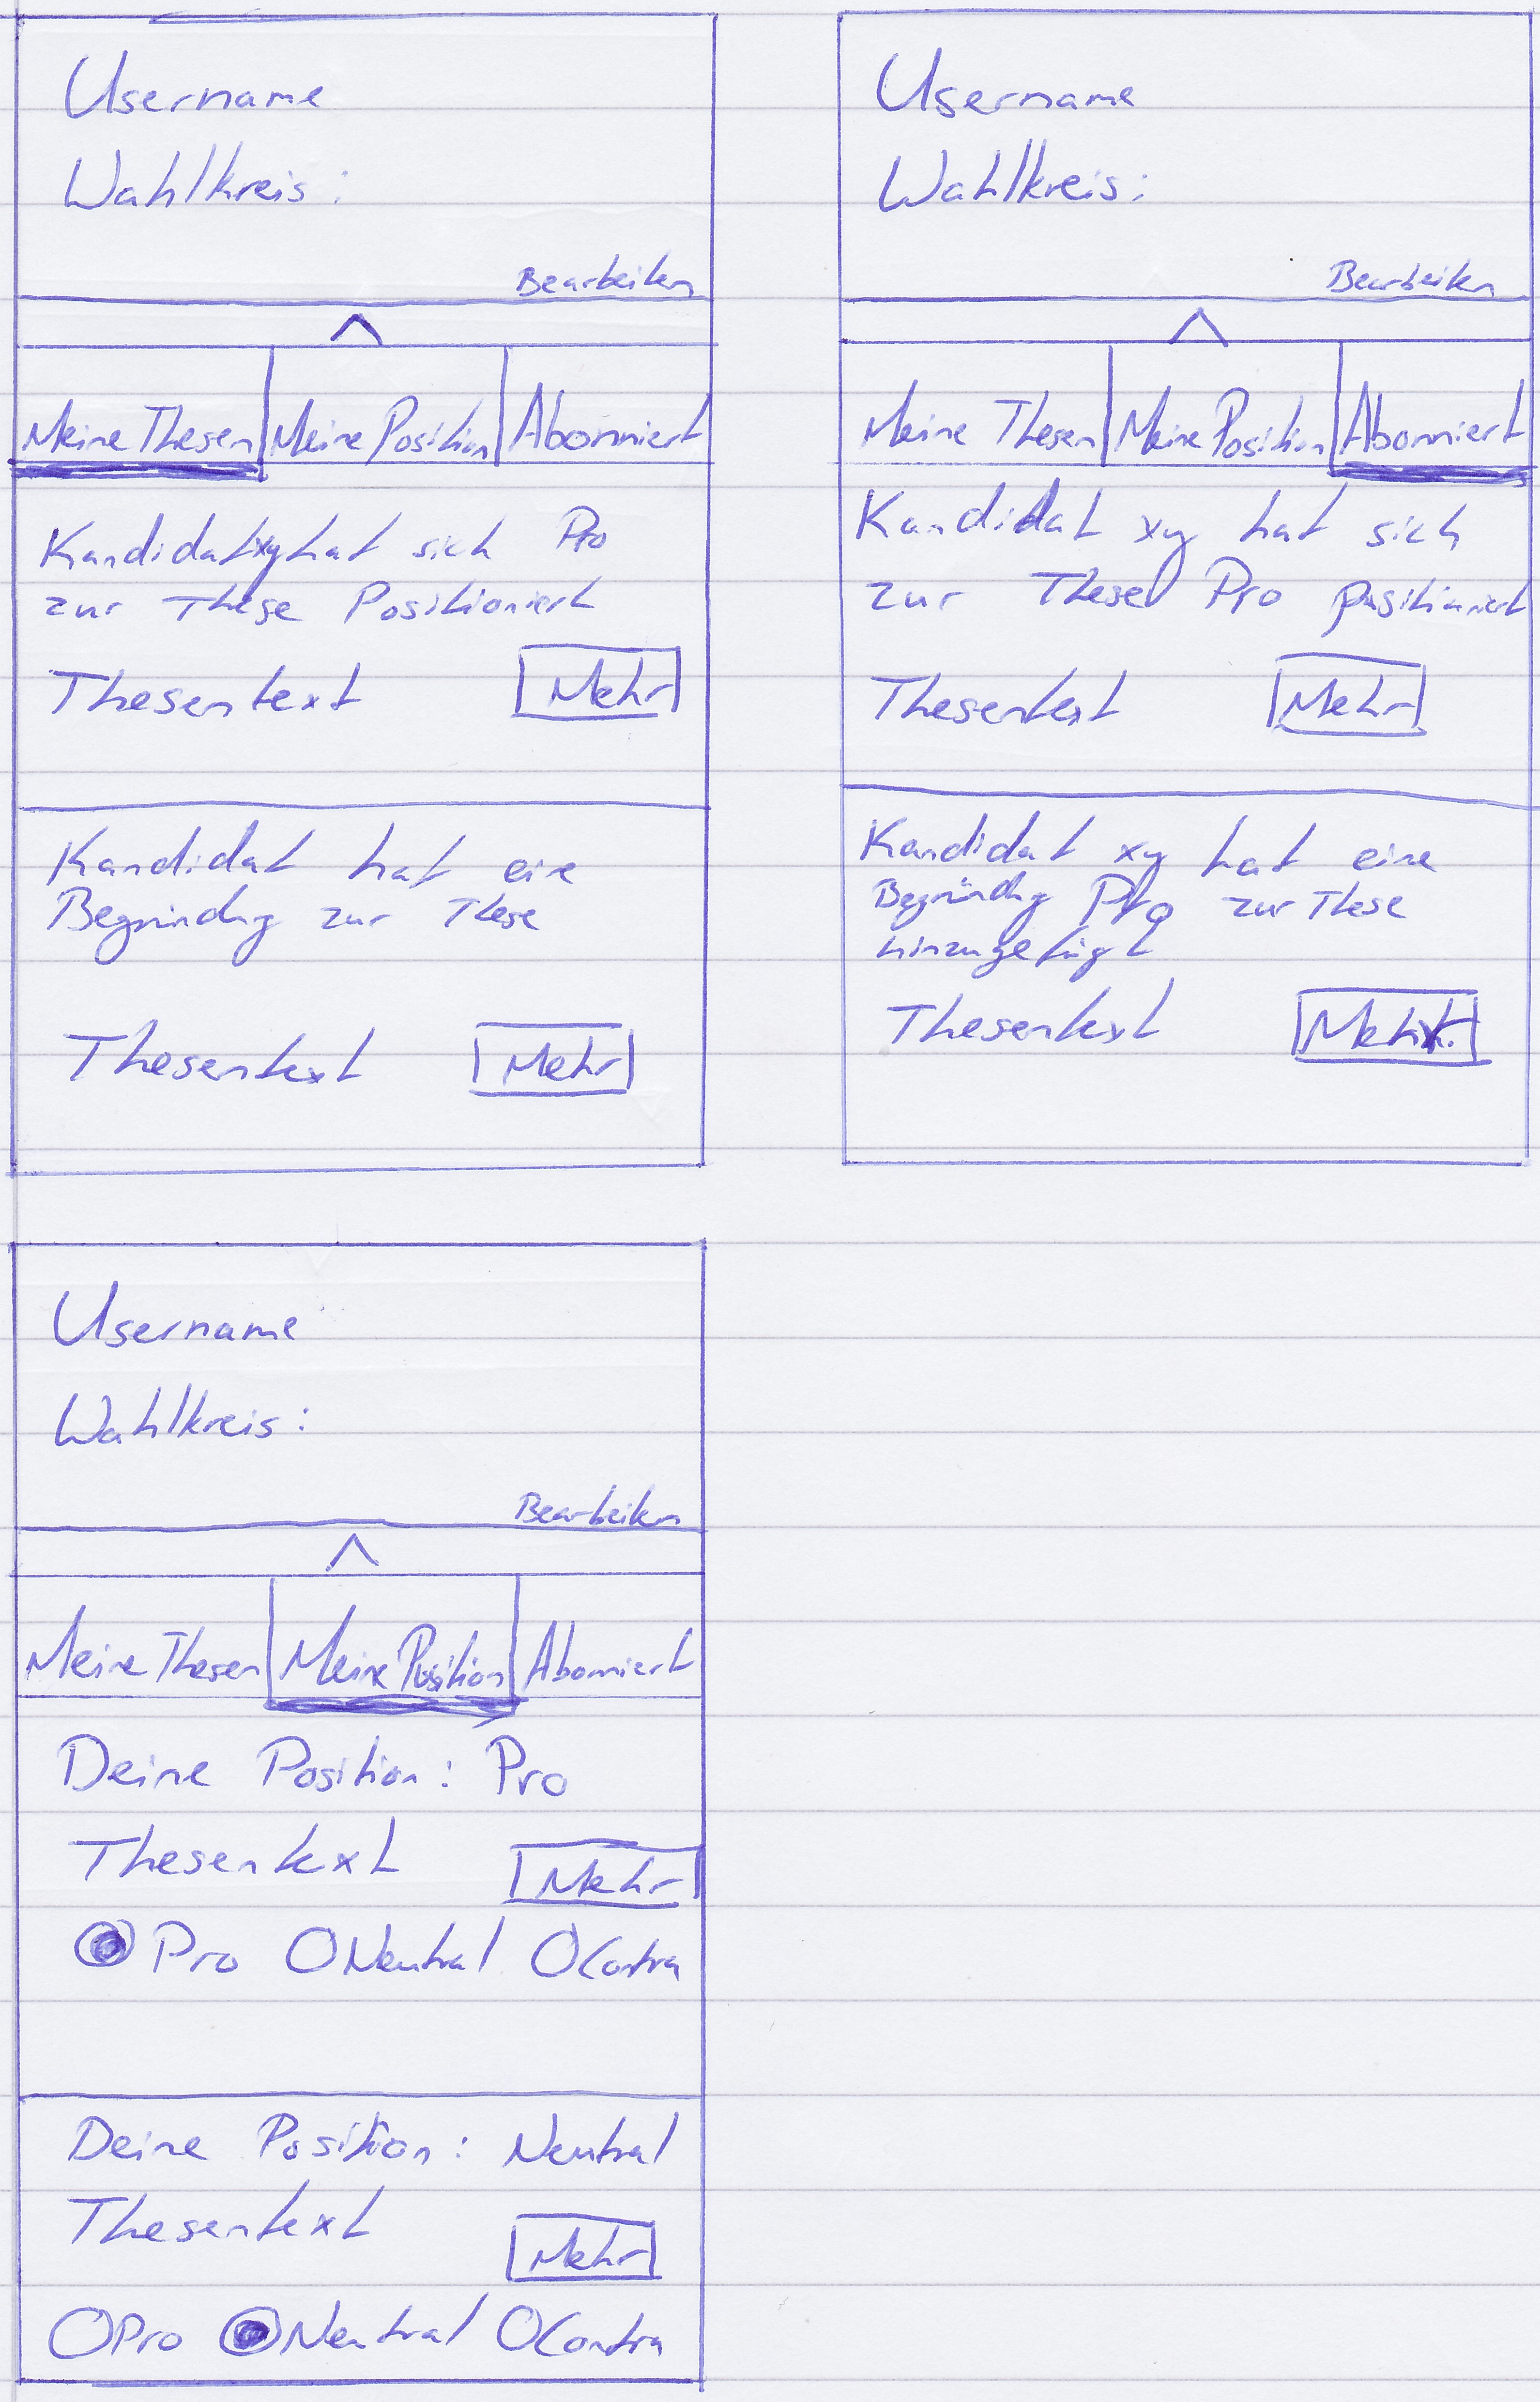 Username
Wahlkreis:
Bearbeiten
Meine Thesen Meine Position Abonniert
Kandidat xy hat sich Pro
zur These Positioniert
Thesentext Mehr
Kandidat hat eine
Begründung zur These
Thesentext Mehr
Username
Wahlkreis:
Bearbeiten
Meine Thesen Meine Position Abonniert
Kandidat xy hat sich
zur These Pro positioniert
Thesentext Mehr
Kandidat xy hat eine
Begründung Pro zur These
hinzugefügt
Thesentext Mehr
Username
Wahlkreis:
Bearbeiten
Meine Thesen Meine Position Abonniert
Deine Position: Pro
Thesentext Mehr
Pro Neutral Contra
Deine Position: Neutral
Thesentext Mehr
Pro Neutral Contra